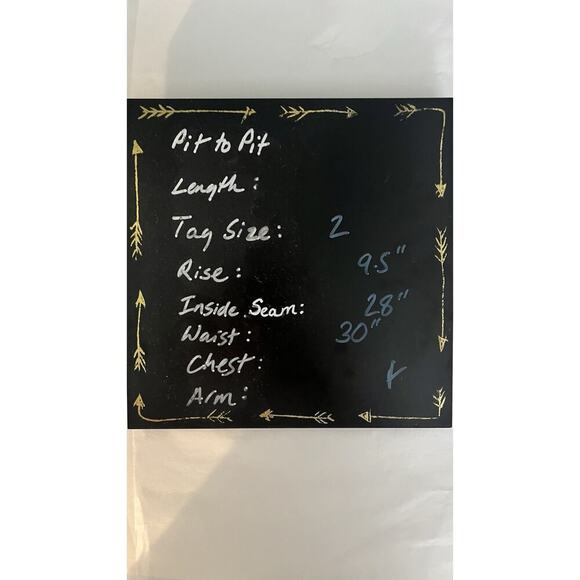 Pit to Pit
Length:
Tag Size: 2
Rise: 9.5"
Inside Seam: 28"
Waist: 30"
Chest:
Arm: